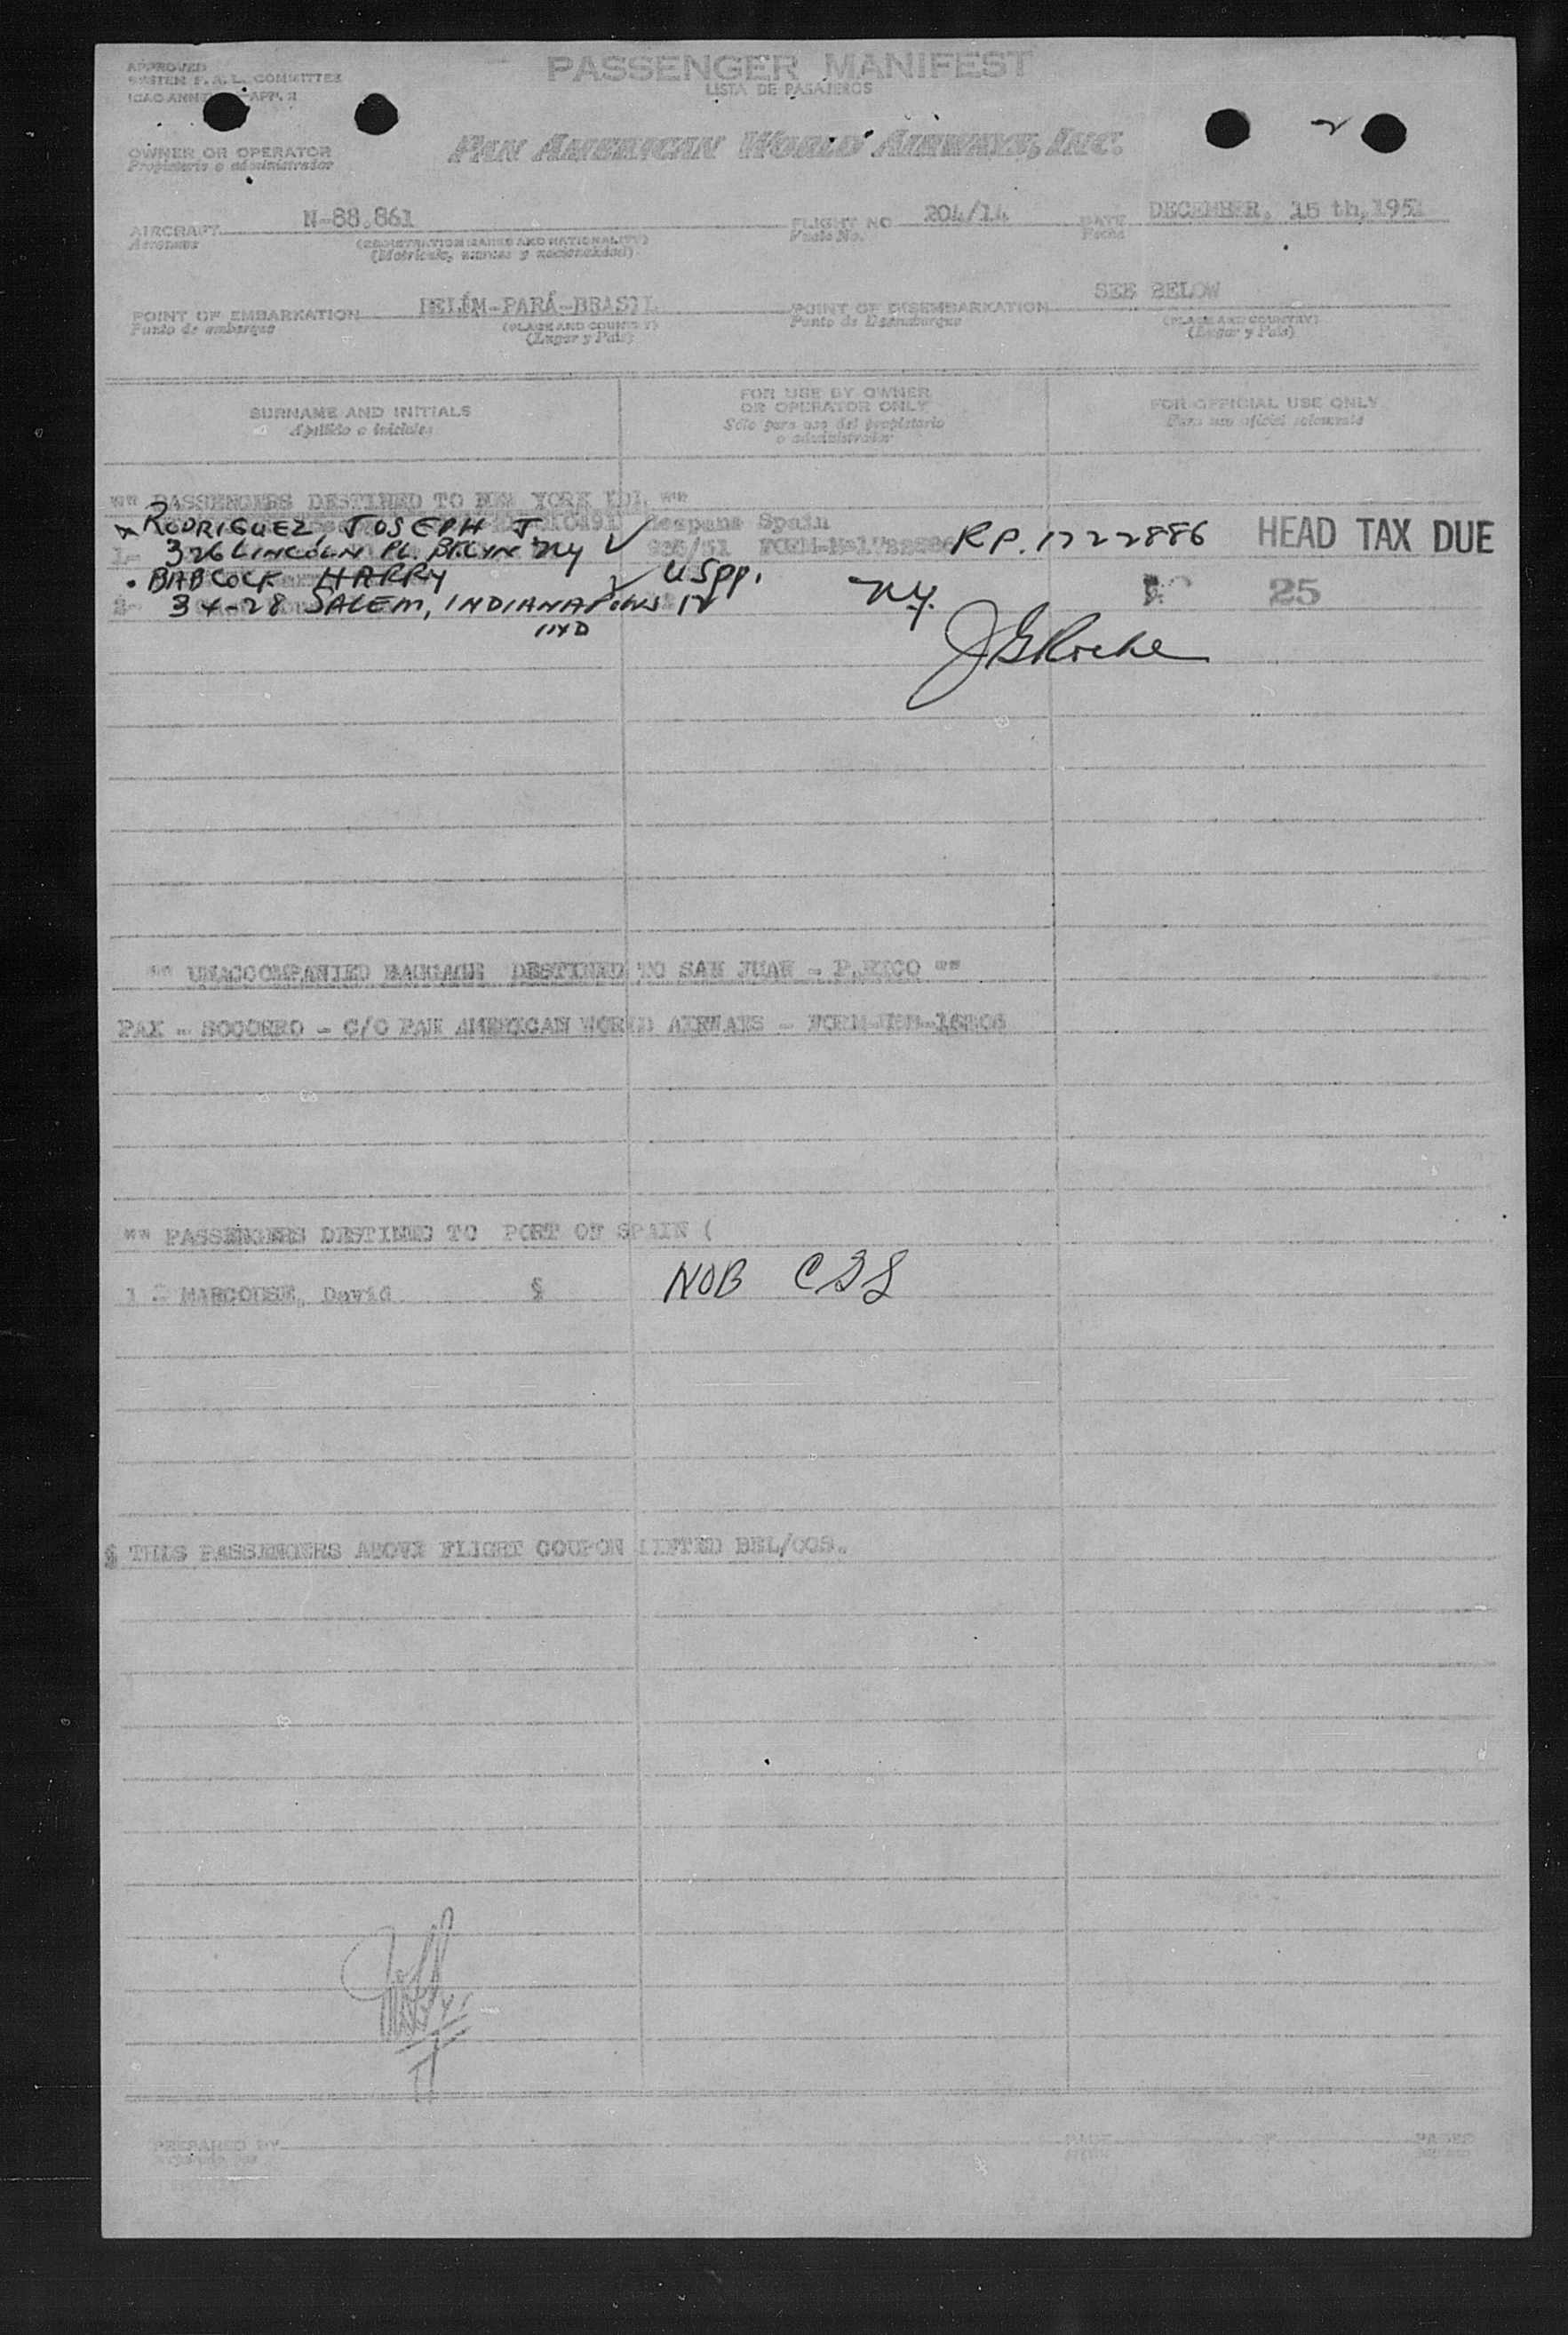 APPROVED
SYSTEM F.A.L. COMMITTEE
ICAO ANNEX APP. 2
PASSENGER MANIFEST
LISTA DE PASAJEROS
OWNER OR OPERATOR
Propietario o administrador
PAN AMERICAN WORLD AIRWAYS, INC.
AIRCRAFT N-88.861 FLIGHT NO 204/14 DATE DECEMBER, 15 th, 1951
Aeronave (REGISTRATION MARKS AND NATIONALITY) Vuelo No. Fecha
(Matricula, marcas y nacionalidad)
POINT OF EMBARKATION BELÉM-PARÁ-BRASIL POINT OF DISEMBARKATION SEE BELOW
Punto de embarque (PLACE AND COUNTRY) Punto de Desembarque (PLACE AND COUNTRY)
(Lugar y Pais) (Lugar y Pais)
SURNAME AND INITIALS
Apellido e iniciales
FOR USE BY OWNER
OR OPERATOR ONLY
Sólo para uso del propietario
o administrador
FOR OFFICIAL USE ONLY
Para uso oficial solamente
"" PASSENGERS DESTINED TO NEW YORK IDL ""
RODRIGUEZ, JOSEPH J Spain
1- 326 LINCOLN PL. BKLYN NY 936/51 RP. 1722886 HEAD TAX DUE
BABCOCK HARRY USpp.
2- 34-28 SALEM, INDIANAPOLIS IV NY. 25
IND
JGRoche
"" UNACCOMPANIED BAGGAGE DESTINED TO SAN JUAN - P.RICO ""
PAX - SOCORRO - C/O PAN AMERICAN WORLD AIRWAYS -
"" PASSENGERS DESTINED TO PORT OF SPAIN (
1 - David § NOB
§ THIS PASSENGERS ABOVE FLIGHT COUPON LIFTED BEL/POS.
PREPARED BY PAGE OF PAGES